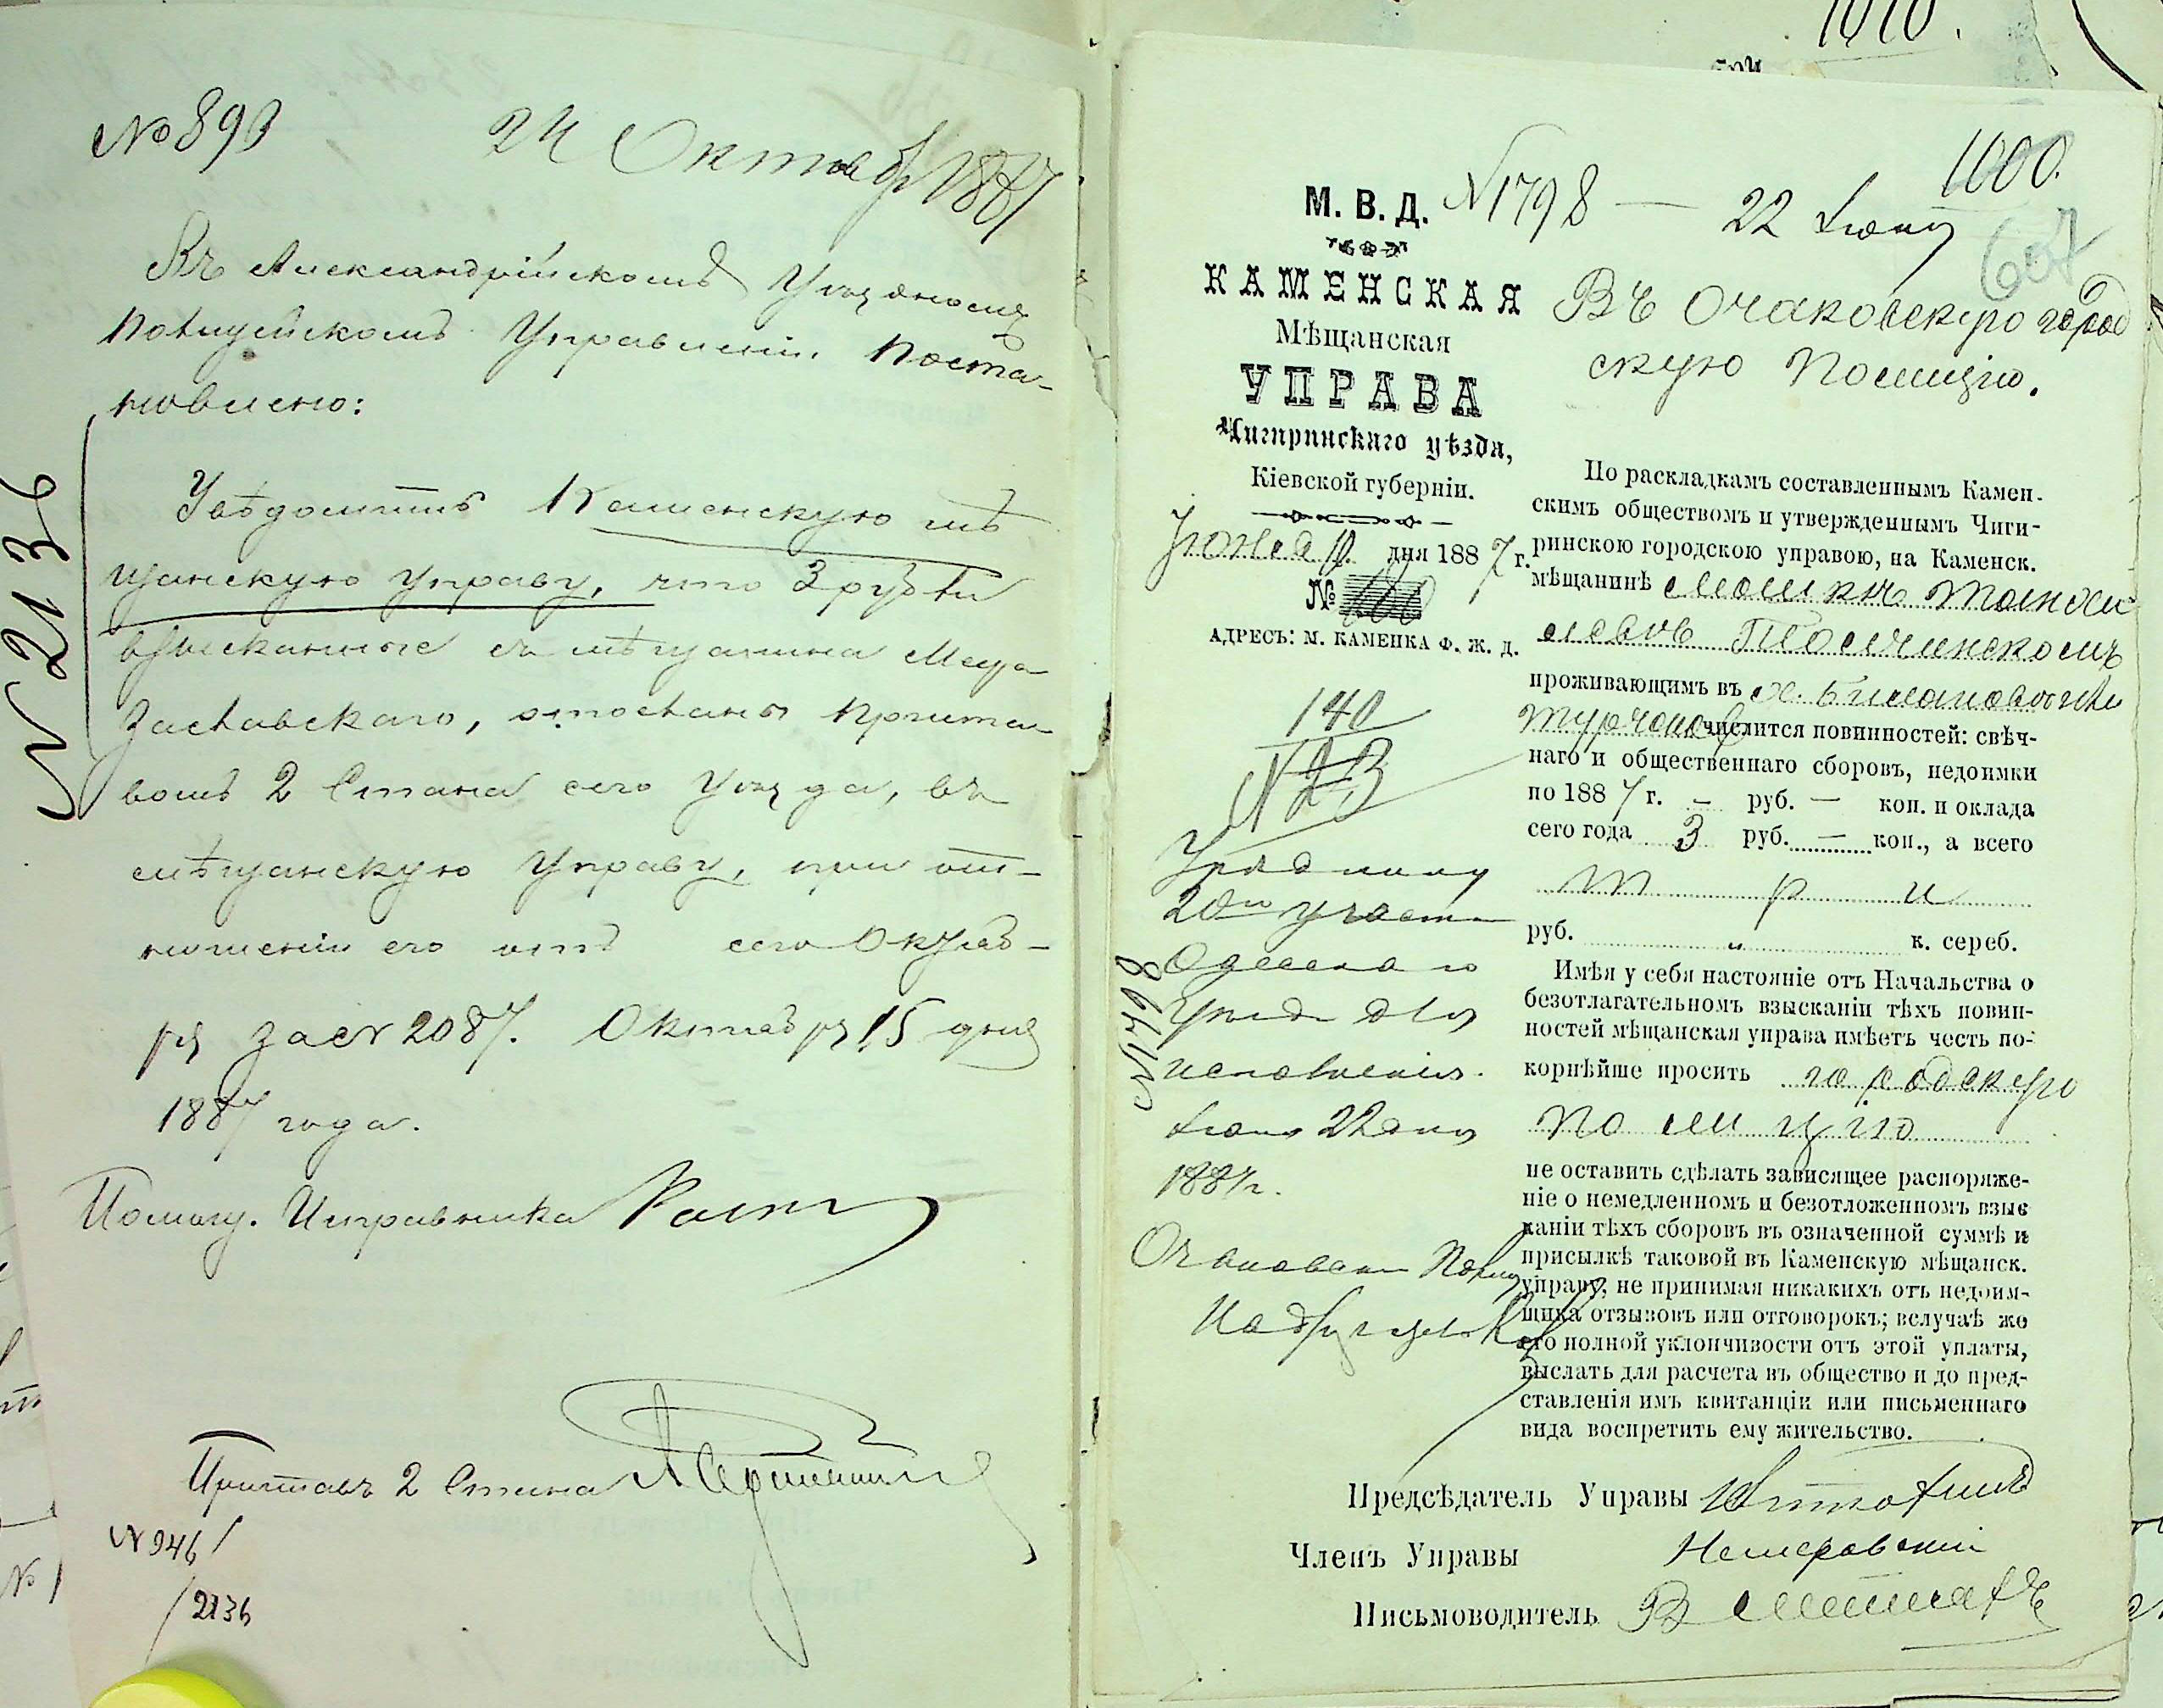 № 893 24 Октябр 1887
Въ Александрійскомъ Уѣздномъ
Полицейскомъ Управленіи Поста-
новлено:
N 2136
Увѣдомить Каменскую мѣ
щанскую Управу, что 3 рубли
взысканные съ мѣщанина
Заславскаго, отосланы Приста
вомъ 2 Стана сего Уѣзда, въ
мѣщанскую Управу, при от-
ношеніи его отъ сего Октяб-
ря за N 2087. Октября 15 дня
1887 года.
Помощ. Исправника
Приставъ 2 Стана
N 946
2136
1010.
1000.
607
М. В. Д. N 1798 — 22 Іюня
КАМЕНСКАЯ
Мѣщанская
УПРАВА
Чигиринскаго уѣзда,
Кіевской губерніи.
Іюня дня 1887 г.
№
АДРЕСЪ: М. КАМЕНКА Ф. Ж. Д.
140
N 23
Уряднику
20го участ
Одесскаго
уѣзда для
исполненія.
Іюня 22 дня
1887 г.
N 1798
Въ Очаковскую город
скую Полицію.
По раскладкамъ составленнымъ Камен-
скимъ обществомъ и утвержденнымъ Чиги-
ринскою городскою управою, на Каменск.
мѣщанинѣ Мошкѣ
проживающимъ въ
числится повинностей: свѣч-
наго и общественнаго сборовъ, недоимки
по 1887 г. — руб. — коп. и оклада
сего года 3 руб. — коп., а всего
три
руб. „ к. сереб.
Имѣя у себя настояніе отъ Начальства о
безотлагательномъ взысканіи тѣхъ повин-
ностей мѣщанская управа имѣетъ честь по-
корнѣйше просить городскую
полицію
не оставить сдѣлать зависящее распоряже-
ніе о немедленномъ и безотложенномъ взыс
каніи тѣхъ сборовъ въ означенной суммѣ и
присылкѣ таковой въ Каменскую мѣщанск.
управу, не принимая никакихъ отъ недоим-
щика отзывовъ или отговорокъ; вслучаѣ же
его полной уклончивости отъ этой уплаты,
выслать для расчета въ общество и до пред-
ставленія имъ квитанціи или письменнаго
вида воспретить ему жительство.
Предсѣдатель Управы
Членъ Управы
Письмоводитель